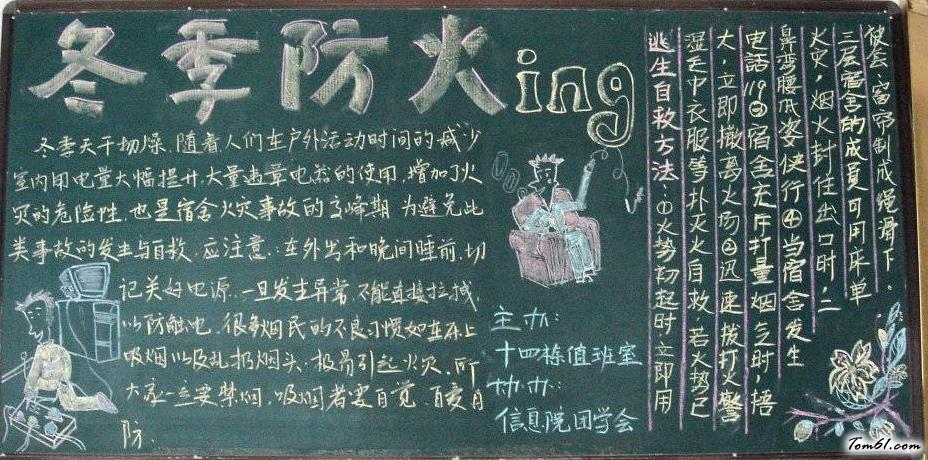 冬季防火ing
冬季天干切燥,随着人们在户外活动时间的减少
室内用电量大幅提升,大量违章电器的使用,增加了火
灾的危险性,也是宿舍火灾事故的高峰期 为避免此
类事故的发生与自救,应注意:在外出和晚间睡前,切
记关好电源.一旦发生异常,不能直接拉拭,
以防触电,很多烟民的不良习惯如在床上
吸烟以及乱扔烟头.极易引起火灾,所
大家一定要禁烟,吸烟者要自觉、自爱自
防.
主办:
十四栋值班室
协办:
信息院团学会
逃生自救方法:①火势初起时立即用
湿毛巾衣服等扑灭火自救 若火势已
大,立即撤离火场②迅速拨打火警
电話119③宿舍充斥打量烟气时,捂
鼻弯腰低姿快行④当宿舍发生
火灾,烟火封住出口时,二
三层宿舍的成員可用床单
被套,窗帘制成绳滑下。
Tom61.com